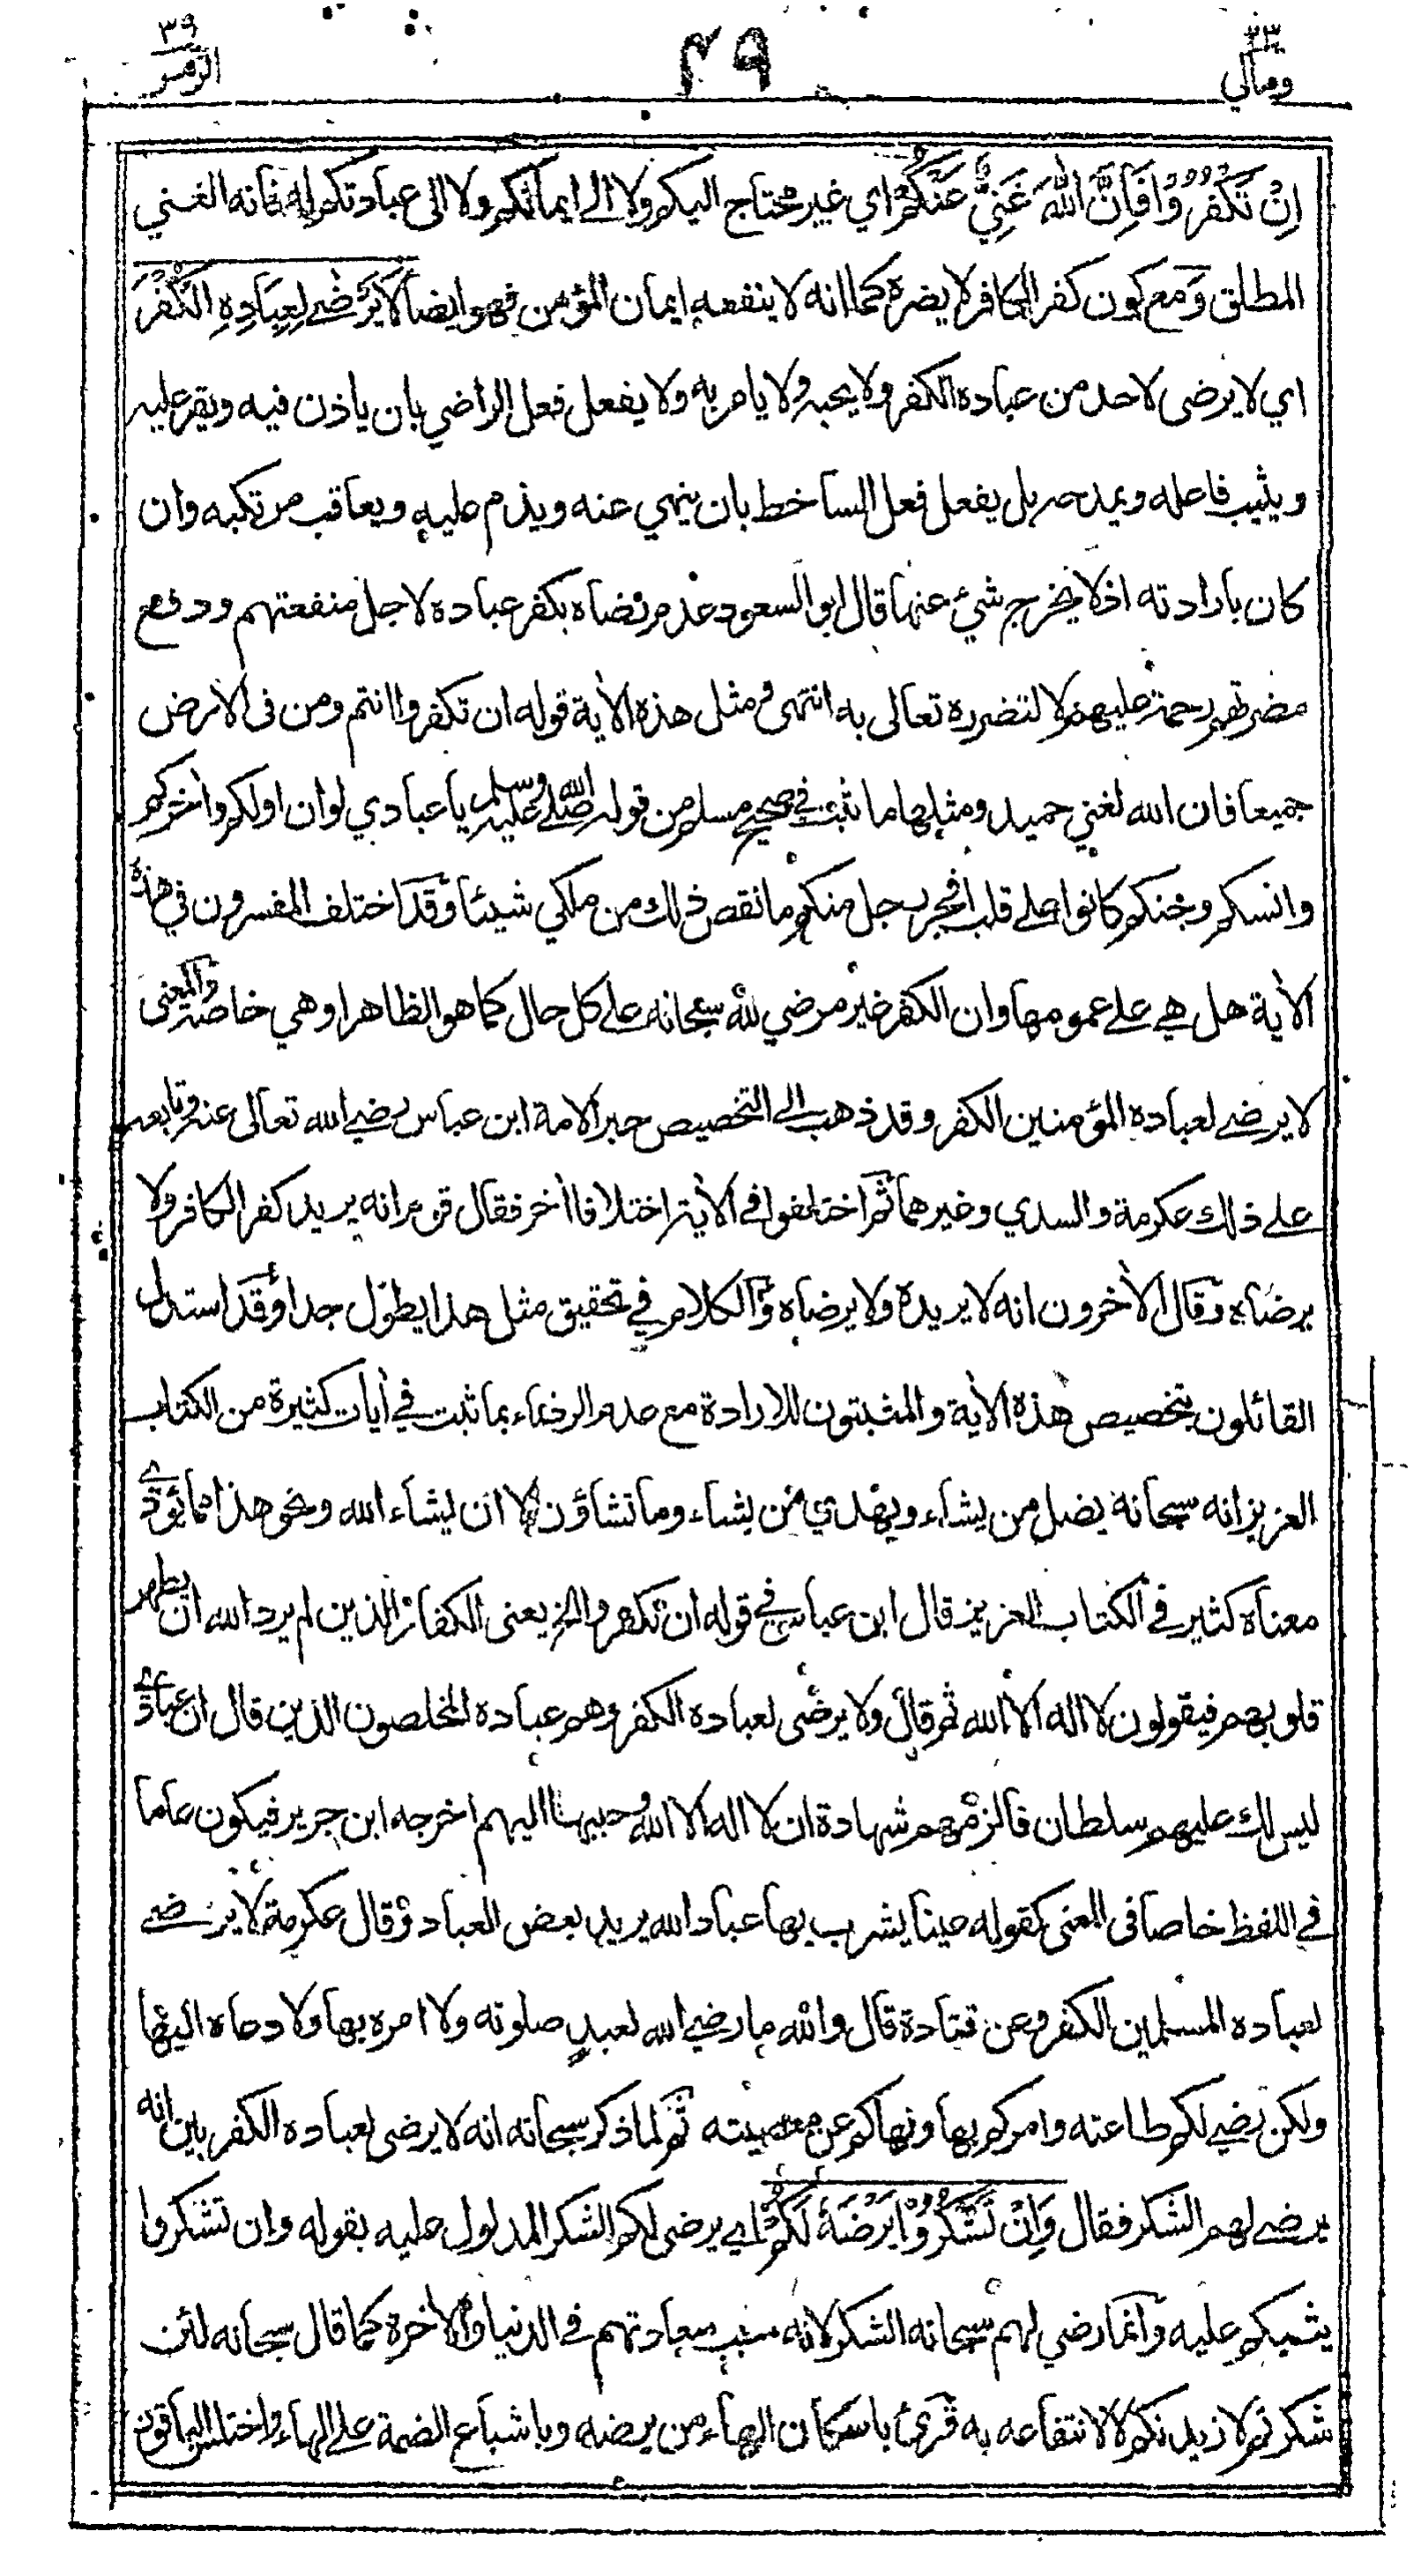 ٢٣
ومالي
٤٩
٣٩
الزمر
اِنْ تَكْفُرُوْا فَاِنَّ اللّٰهَ غَنِيٌّ عَنْكُمْ اي غير محتاج اليكم ولا الى ايمانكم ولا الى عبادتكم له فانه الغني
المطلق وَمع كون كفر الكافر لا يضره كما انه لا ينفعه ايمان المؤمن فهو ايضا لَا يَرْضٰى لِعِبَادِهِ الْكُفْرَ
اي لا يرضى لاحد من عباده الكفر ولا يحبه ولا يامر به ولا يفعل فعل الراضي بان ياذن فيه ويقر عليه
ويثيب فاعله ويمدحه بل يفعل فعل الساخط بان ينهي عنه ويذم عليه ويعاقب مرتكبه وان
كان بارادته اذ لا يخرج شيء عنها قال ابو السعود عدم رضاه بكفر عباده لاجل منفعتهم ودفع
مضرتهم رحمة عليهم لا لتضرره تعالى به انتهى ومثل هذه الاٰية قوله ان تكفروا انتم ومن فى الارض
جميعا فان الله لغني حميد ومثلها ما ثبت في صحيح مسلم من قوله صلى الله عليه وسلم يا عبادي لو ان اولكم واٰخركم
وانسكم وجنكم كانوا على قلب افجر رجل منكم ما نقص ذلك من ملكي شيئا وقد اختلف المفسرون في هذه
الاٰية هل هي على عمومها وان الكفر غير مرضي لله سبحانه على كل حال كما هو الظاهر او هي خاصة والمعنى
لا يرضى لعباده المؤمنين الكفر وقد ذهب الى التخصيص حبر الامة ابن عباس رضي الله تعالى عنه وتابعه
على ذلك عكرمة والسدي وغيرهما ثم اختلفوا في الاٰية اختلافا اٰخر فقال قوم انه يريد كفر الكافر ولا
يرضاه وقال الاٰخرون انه لا يريده ولا يرضاه والكلام في تحقيق مثل هذا يطول جدا وقد استدل
القائلون بتخصيص هذه الاٰية والمثبتون للارادة مع عدم الرضاء بما ثبت في اٰيات كثيرة من الكتاب
العزيز انه سبحانه يضل من يشاء ويهدي من يشاء وما تشاؤن الا ان يشاء الله ونحو هذا مما يؤدي
معناه كثير في الكتاب العزيز قال ابن عباس في قوله ان تكفروا الخ يعنى الكفار الذين لم يرد الله ان يطهر
قلوبهم فيقولون لا اله الا الله ثم قال ولا يرضى لعباده الكفر وهم عباده المخلصون الذين قال ان عبادي
ليس لك عليهم سلطان فالزمهم شهادة ان لا اله الا الله وحببها اليهم اخرجه ابن جرير فيكون عاما
في اللفظ خاصا فى المعنى كقوله عينا يشرب بها عباد الله يريد بعض العباد وقال عكرمة لا يرضى
لعباده المسلمين الكفر وعن قتادة قال والله ما رضي الله لعبد صلوته ولا امره بها ولا دعاه اليها
ولكن رضي لكم طاعته وامركم بها ونهاكم عن معصيته ثم لما ذكر سبحانه انه لا يرضى لعباده الكفر بين انه
يرضى لهم الشكر فقال وَاِنْ تَشْكُرُوْا يَرْضَهُ لَكُمْ اي يرضى لكم الشكر المدلول عليه بقوله وان تشكروا
يثيبكم عليه وانما رضي لهم سبحانه الشكر لانه سبب سعادتهم في الدنيا والاٰخرة كما قال سبحانه لئن
شكرتم لازيدنكم لا لانتفاعه به قرئ باسكان الهاء من يرضه وباشباع الضمة على الهاء واختلس الباقون